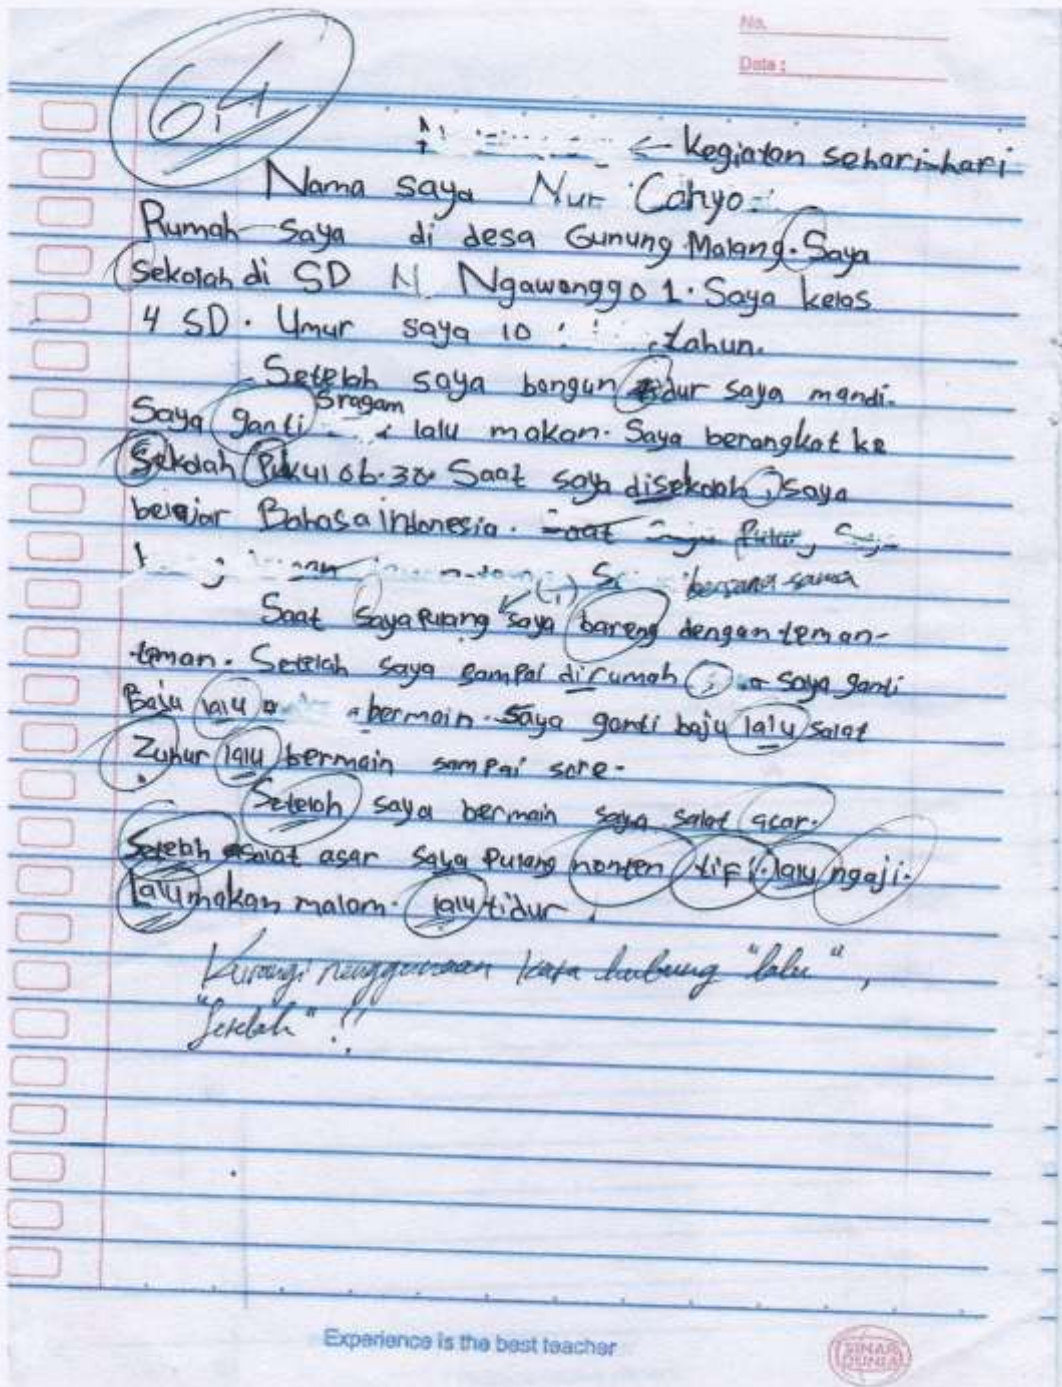 No.
Date :
64
← Kegiatan sehari-hari
Nama saya Nur Cahyo.
Rumah saya di desa Gunung Malang. Saya
sekolah di SD N Ngawonggo 1. Saya kelas
4 SD. Umur saya 10 tahun.
Setelah saya bangun tidur saya mandi.
Sragam
Saya ganti lalu makan. Saya berangkat ke
Sekolah Pukul 06.30. Saat saya disekolah, saya
belajar Bahasa indonesia.
bersama sama
Saat saya pulang saya bareng dengan teman-
teman. Setelah saya sampai dirumah, saya ganti
Baju lalu bermain. Saya ganti baju lalu salat
Zuhur lalu bermain sampai sore.
Setelah saya bermain saya salat acar.
Setelah salat asar saya Pulang nonten tifi. lalu ngaji.
lalu makan malam. lalu tidur.
Kurangi penggunaan kata hubung "lalu",
"setelah" !!
Experience is the best teacher
SINAR DUNIA